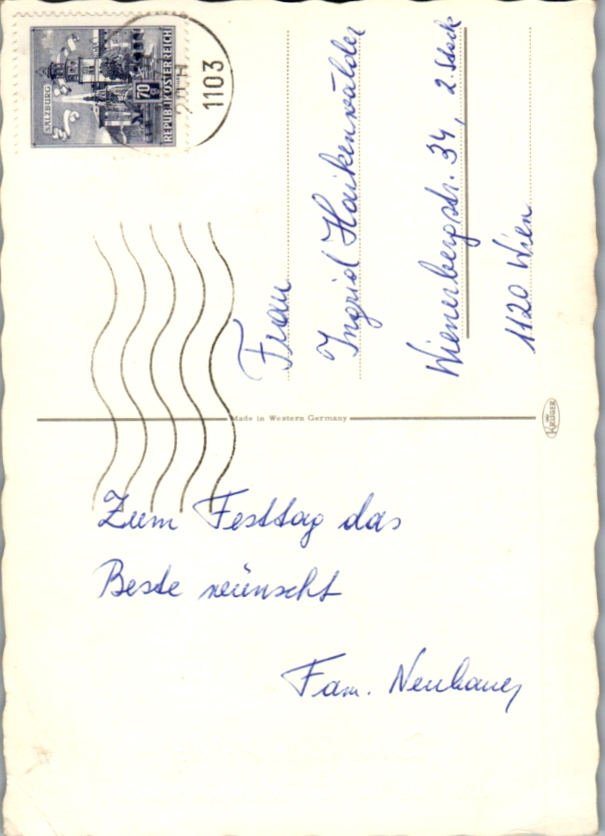 SALZBURG
70
REPUBLIK ÖSTERREICH
1103
Frau
Ingrid Haikenwälder
Wienerbergstr. 34, 2. Stock
1120 Wien
Made in Western Germany
KRÜGER
Zum Festtag das
Beste wünscht
Fam. Neubauer